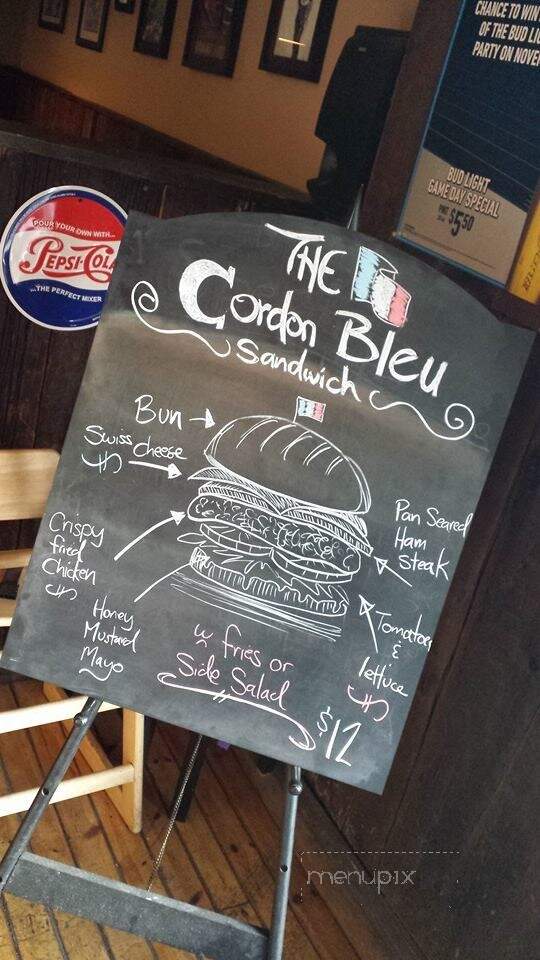 CHANCE TO WIN
OF THE BUD LIG
PARTY ON NOVE
BUD LIGHT
GAME DAY SPECIAL
$5.50
POUR YOUR OWN WITH...
PEPSI-COLA
...THE PERFECT MIXER
THE
Cordon Bleu
Sandwich
Bun
Swiss Cheese
Crispy
fried
Chicken
Honey
Mustard
Mayo
Pan Seared
Ham
Steak
Tomatoes
&
lettuce
w fries or
Side Salad
$12
menupix